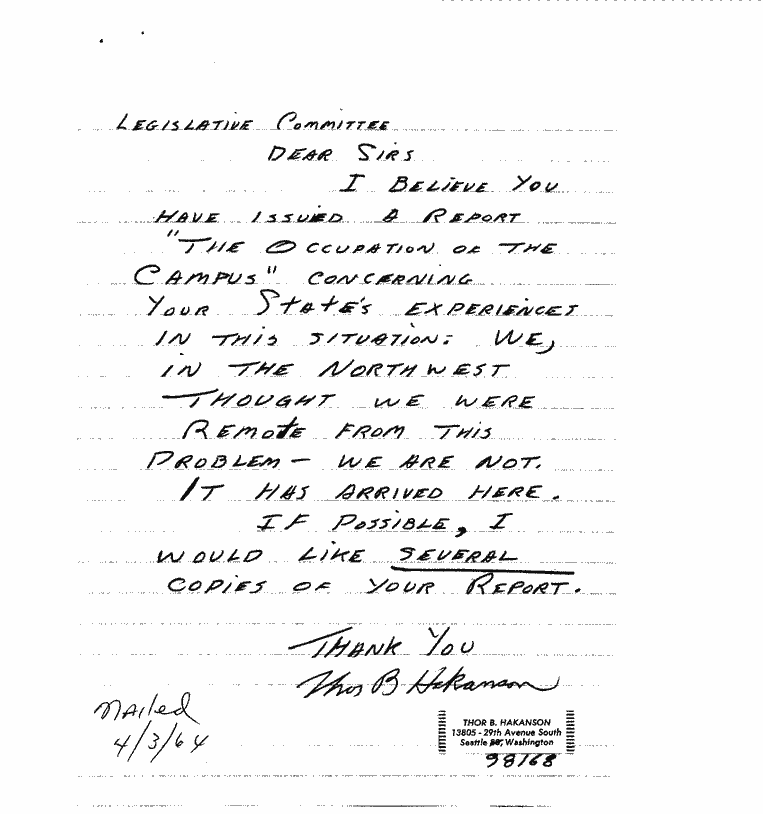 LEGISLATIVE COMMITTEE
DEAR SIRS
I BELIEVE YOU
HAVE ISSUED A REPORT
"THE OCCUPATION OF THE
CAMPUS" CONCERNING
YOUR STATE'S EXPERIENCES
IN THIS SITUATION: WE,
IN THE NORTHWEST
THOUGHT WE WERE
REMOTE FROM THIS
PROBLEM — WE ARE NOT.
IT HAS ARRIVED HERE.
IF POSSIBLE, I
WOULD LIKE SEVERAL
COPIES OF YOUR REPORT.
THANK YOU
Thor B Hakanson
Mailed
4/3/64
THOR B. HAKANSON
13805 - 29th Avenue South
Seattle Washington
98168